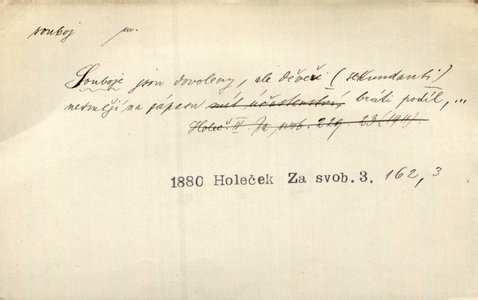 souboj m.
Souboje jsou dovoleny, ale děveři (sekundanti)
nesmějí na zápasu mít účastenství, bráti podíl,...
Holeč. IV. Za svob. 229. 23 (1911)
1880 Holeček Za svob.3. 162,3